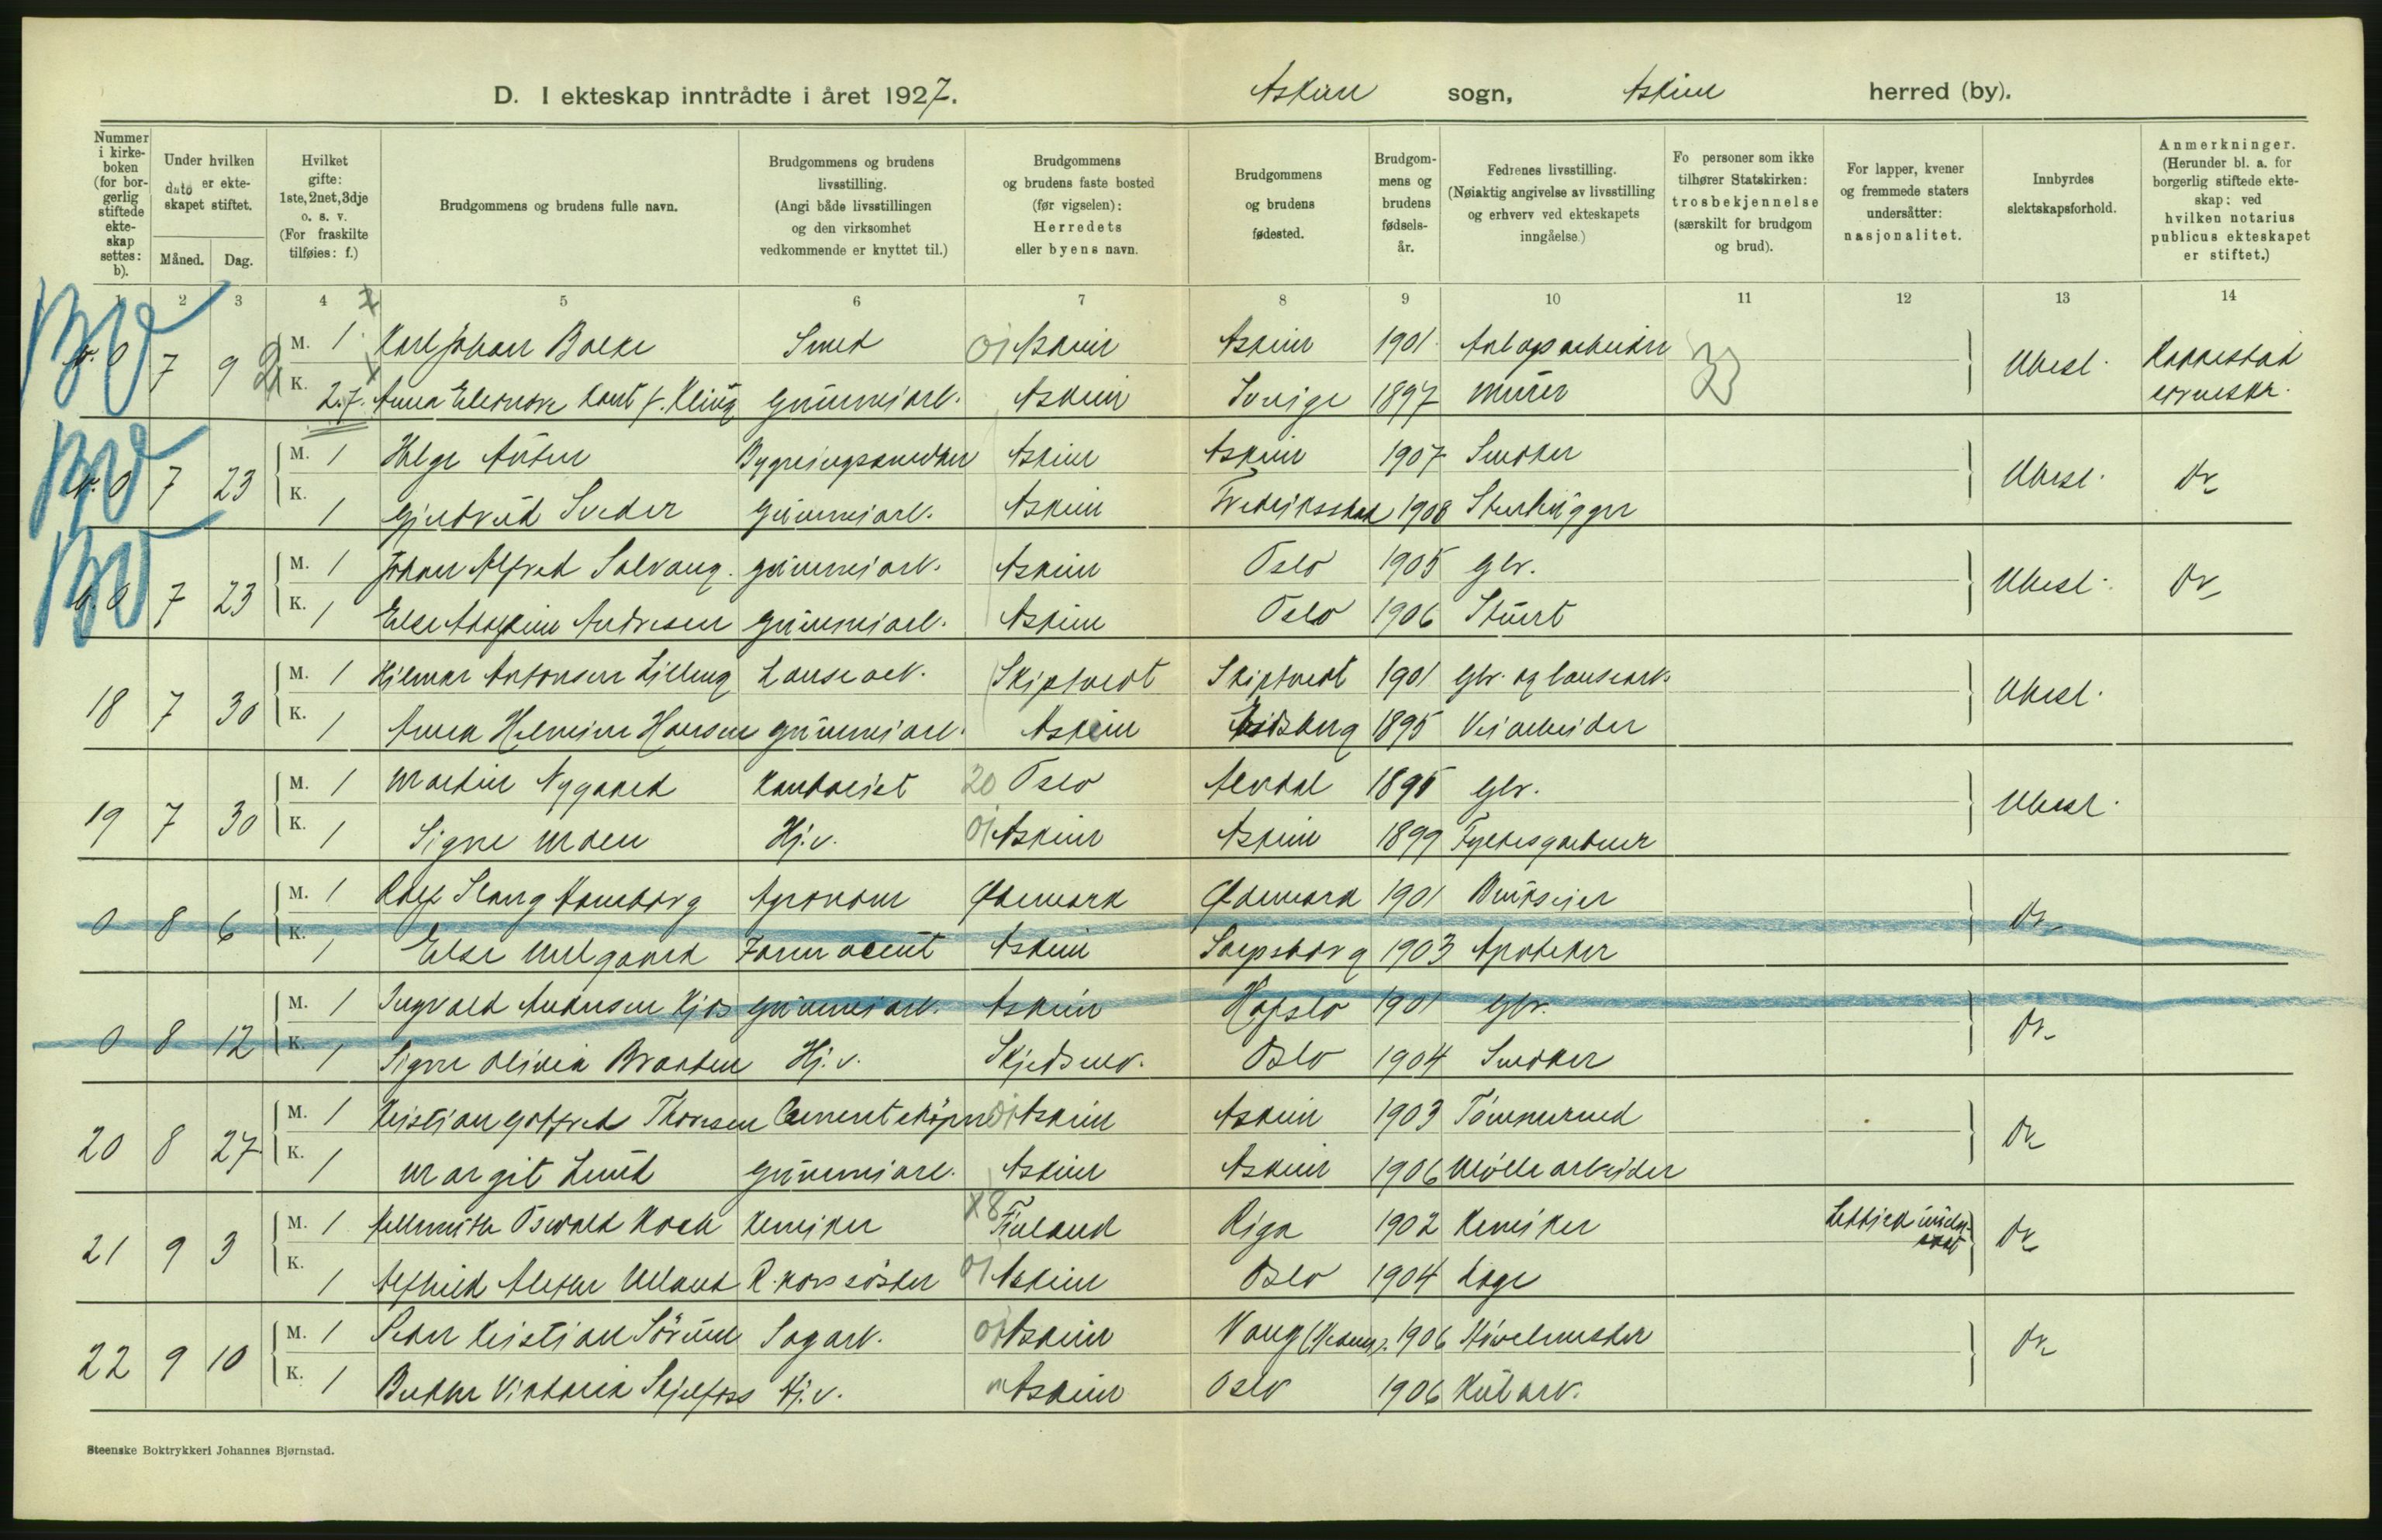 D. I ekteskap inntrådte i året 1927.
Askim sogn, Askim herred (by).
Nummer i kirkeboken (for borgerlig stiftede ekteskap settes: b).
Under hvilken dato er ekteskapet stiftet.
Måned. Dag.
Hvilket gifte: 1ste, 2net, 3dje o. s. v. (For fraskilte tilføies: f.)
Brudgommens og brudens fulle navn.
Brudgommens og brudens livsstilling. (Angi både livsstillingen og den virksomhet vedkommende er knyttet til.)
Brudgommens og brudens faste bosted (før vigselen): Herredets eller byens navn.
Brudgommens og brudens fødested.
Brudgommens og brudens fødselsår.
Fedrenes livsstilling. (Nøiaktig angivelse av livsstilling og erhverv ved ekteskapets inngåelse)
Fo personer som ikke tilhører Statskirken: trosbekjennelse (særskilt for brudgom og brud).
For lapper, kvener og fremmede staters undersåtter: nasjonalitet.
Innbyrdes slektskapsforhold.
Anmerkninger. (Herunder bl. a. for borgerlig stiftede ekteskap: ved hvilken notarius publicus ekteskapet er stiftet.)
1 2 3 4 5 6 7 8 9 10 11 12 13 14
b. 0 7 9 M. 1 Karl Johan Smed 01 Askim Askim 1901 Ubesl. Rakkestad
K. 2.f. Anna Eleonore f. Kling Gümmiarb. Askim Sverige 1897 Mürer sorenskr.
b. 0 7 23 M. 1 Helge Bygningssnedker Askim Askim 1907 Snedker Ubesl. Do
K. 1 Gjertrüd Gümmiarb. Askim Fredriksstad 1908 Stenhügger
b. 0 7 23 M. 1 Johan Alfred Solvang. Gümmiarb. Askim Oslo 1905 Gbr. Ubesl. Do
K. 1 Else Andresen Gümmiarb. Askim Oslo 1906 Stüert
18 7 30 M. 1 Hjalmar Antonsen Lilleng Lausearb. Skiptvedt Skiptvedt 1901 Gbr. og lausearb. Ubesl.
K. 1 Anna Helmine Hansen Gümmiarb. Askim Eidsberg 1895 Veiarbeider
19 7 30 M. 1 Martin Nygaard Kontorist 20 Oslo Alvdal 1895 Gbr. Ubesl.
K. 1 Signe Moen Hj.v. 01 Askim Askim 1899 Fylkesgartner
0 8 6 M. 1 Rolf Stang Agronom Ødemark Ødemark 1901 Brükseier Do
K. 1 Else Farmaceüt Askim Sarpsborg 1903 Apoteker
0 8 12 M. 1 Ingvald Andersen Kjos Gümmiarb. Askim Hafslo 1901 Gbr. Do
K. 1 Signe Olivia Braaten Hj.v. Skjedsmo. Oslo 1904 Snedker
20 8 27 M. 1 Kristian Gotfred Thoresen Cementstøper 01 Askim Askim 1903 Tömmermed Do
K. 1 Margit Lünd Gümmiarb. Askim Askim 1906 Møllearbeider
21 9 3 M. 1 Hellmüth Oswald Koch Kemiker X8 Finland Riga 1902 Kemiker Do
K. 1 Alfhild Alethe R. kors søster 01 Askim Oslo 1904 Læge
22 9 10 M. 1 Peder Kristian Sörüm Sagarb. 01 Askim Vang (Hedm.). 1906 Høvelmester Do
K. 1 Viktoria Skjelfoss Hj.v. Askim Oslo 1906 Külarb.
Steenske Boktrykkeri Johannes Bjørnstad.